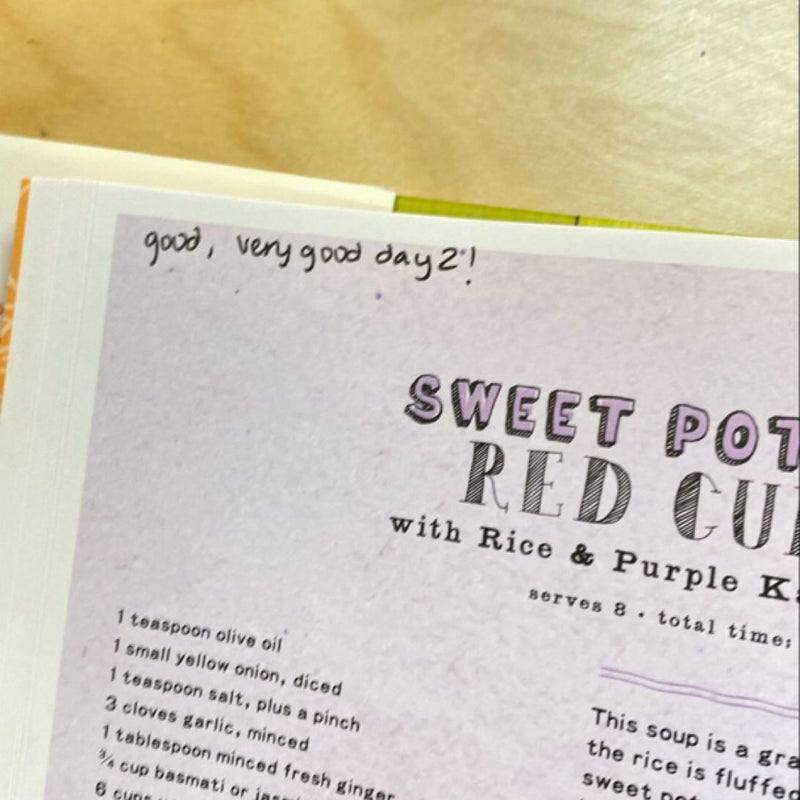 good, very good day 2!
SWEET
RED
with Rice & Purple
serves 8 • total time:
1 teaspoon olive oil
1 small yellow onion, diced
1 teaspoon salt, plus a pinch
3 cloves garlic, minced
1 tablespoon minced fresh ginger
¾ cup basmati or
6 cups
This soup is a
the rice is fluffed
sweet